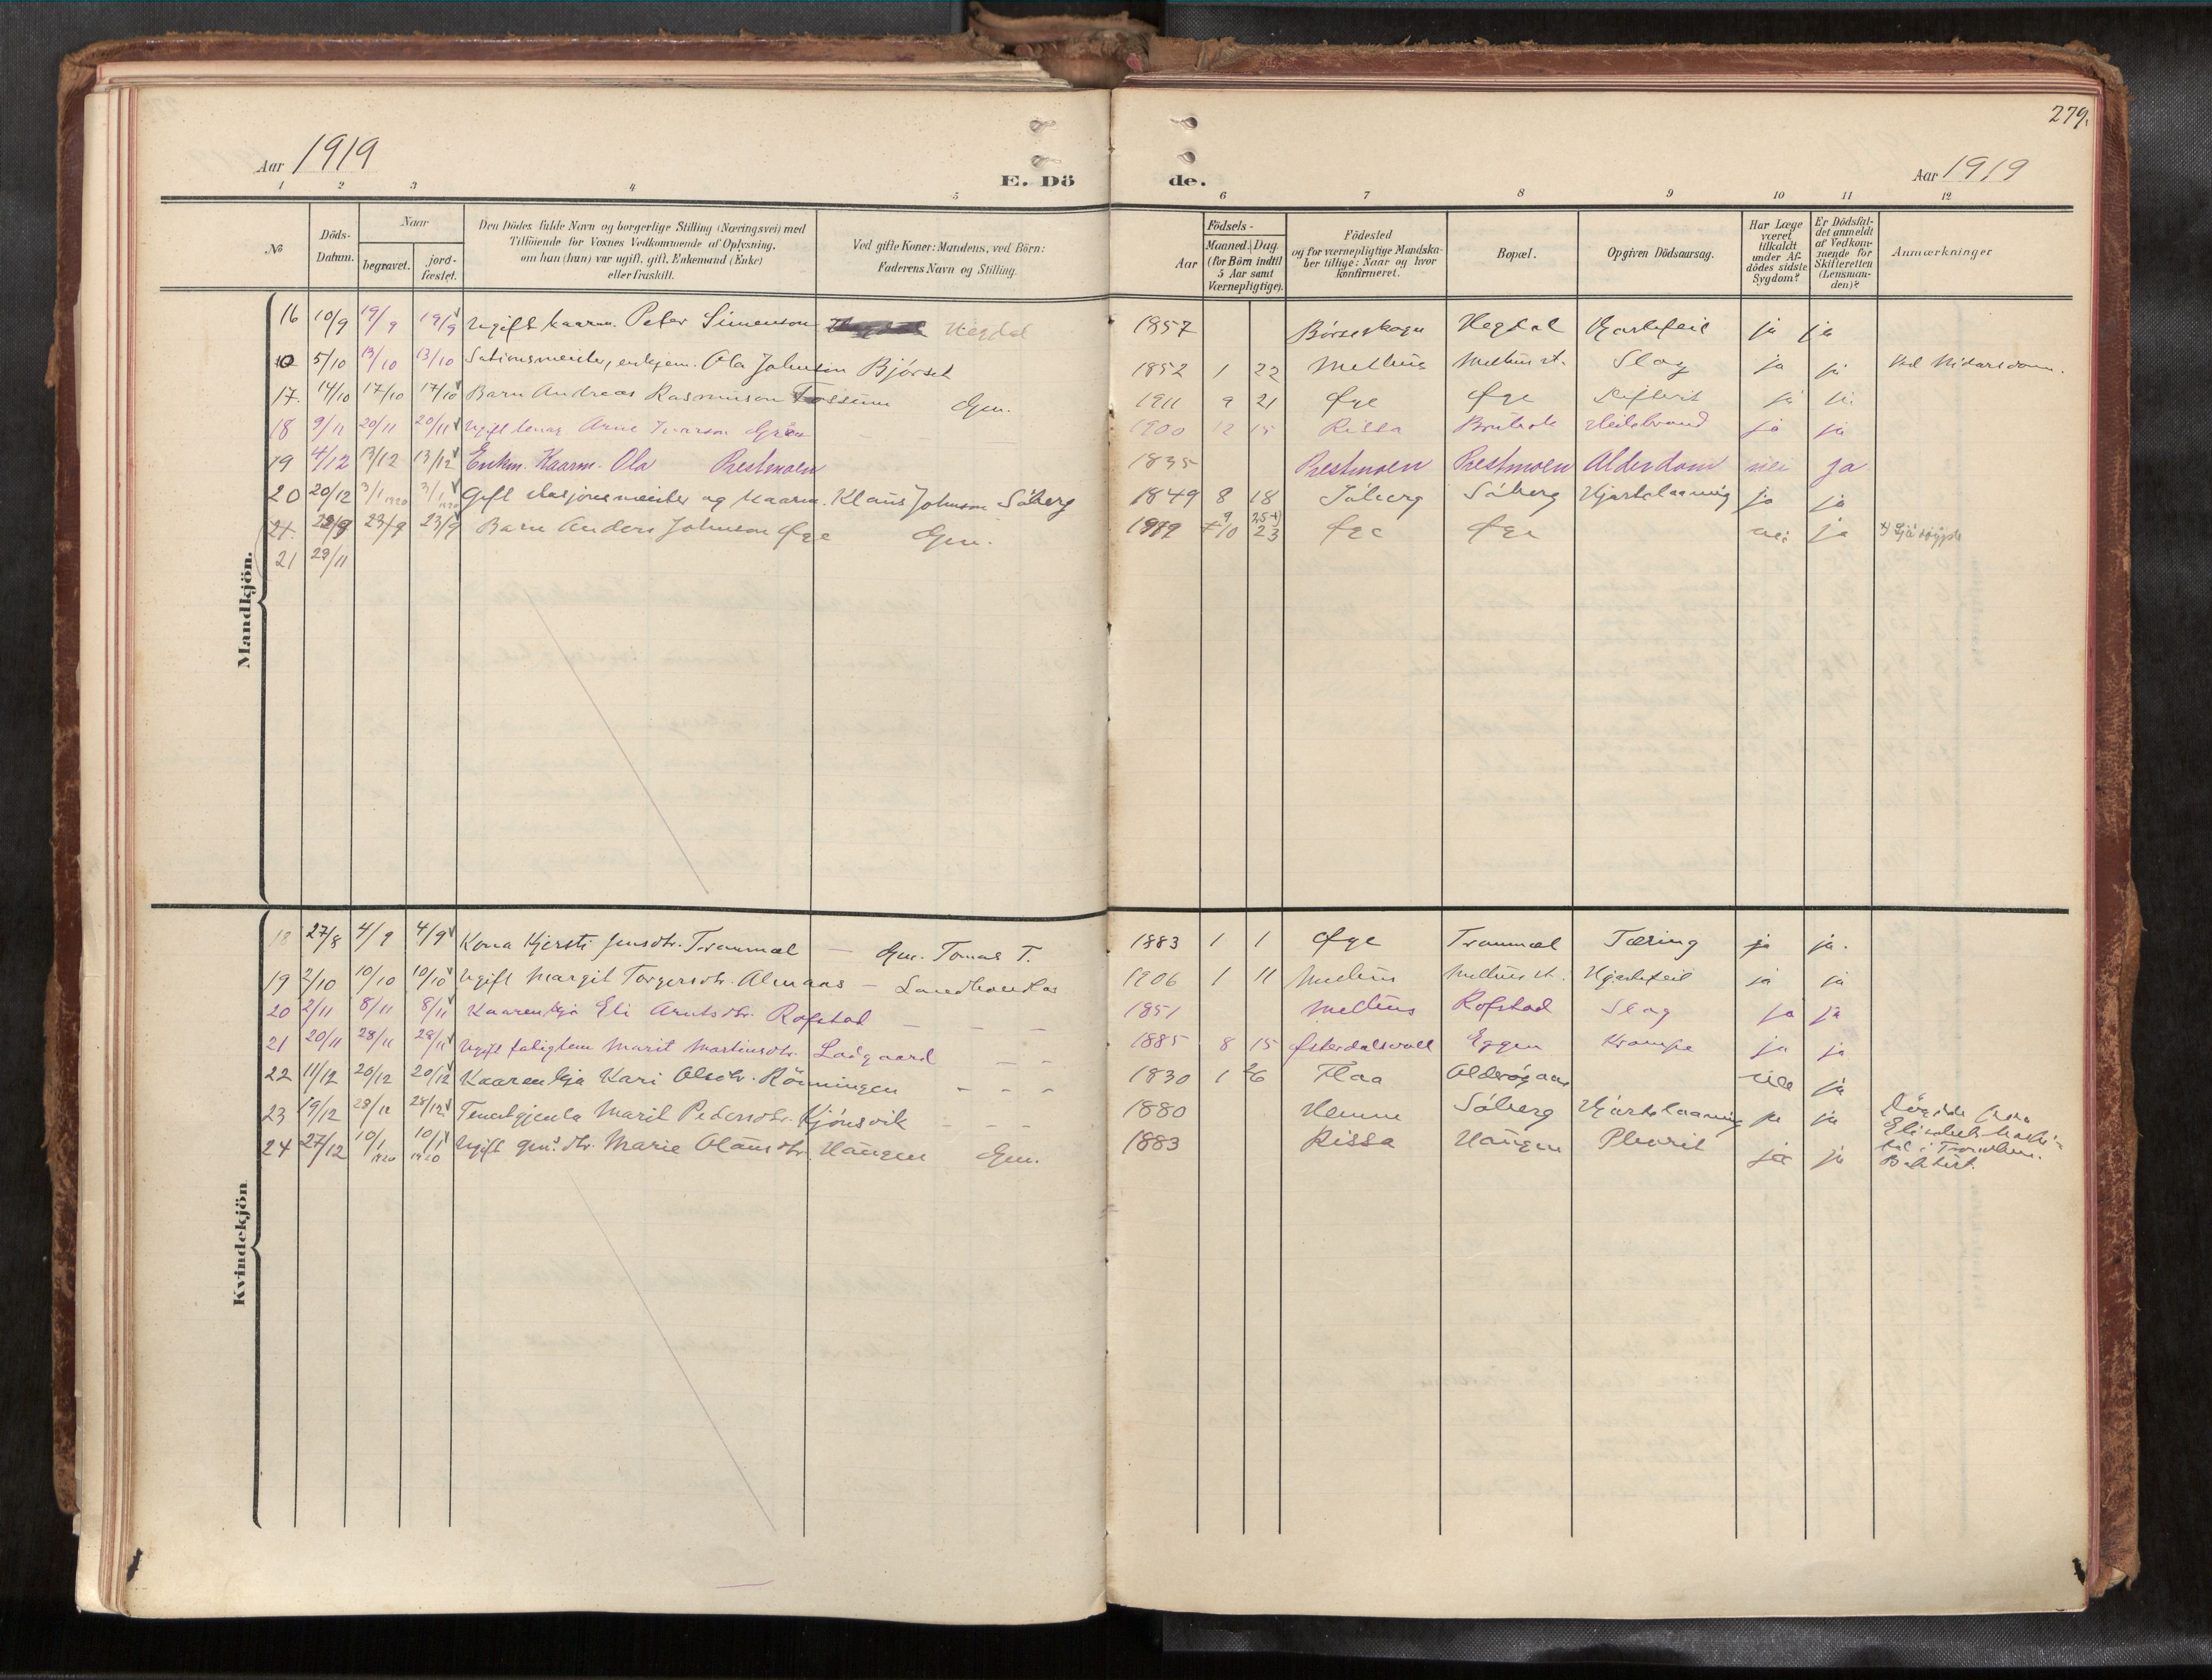 279.
Aar 1919
E. Döde.
Aar 1919
1 2 3 4 5 6 7 8 9 10 11 12
No
Döds-Datum.
Naar
begravet.
jordfæstet.
Den Dödes fulde Navn og borgerlige Stilling (Næringsvei) med
Tilföiende for Voxnes Vedkommende af Oplysning,
om han (hun) var ugift, gift, Enkemand (Enke)
eller fraskilt.
Ved gifte Koner: Mandens, ved Börn:
Faderens Navn og Stilling.
Födsels-
Aar
Maaned. Dag.
(for Börn indtil
5 Aar samt
Værnepligtige).
Födested
og for værnepligtige Mandska-
ber tillige: Naar og hvor
konfirmeret.
Bopæl.
Opgiven Dödsaarsag.
Har Læge
været
tilkaldt
under Af-
dödes sidste
Sygdom?
Er Dödsfal-
det anmeldt
af Vedkom-
mende for
Skifteretten
(Lensman-
den)?
Anmærkninger
Mandkjön.
16 10/9 19/9 19/9 Ugift kaarm. Peter Simenson Hegdal 1857 Børseskogn Hegdal Hjartefeil ja ja
5/10 13/10 13/10 Sationsmeister, enkjem. Ola Johnsen Bjørset 1852 1 22 Melhus Melhus st. Slag ja ja Ved Nidarsdom.
17. 14/10 17/10 17/10 Barn Andreas Rasmusson Fossum Gm. 1911 9 21 Øye Øye ja ja
18 9/11 20/11 20/11 Ugift tenar Arne Ivarson Grøen 1900 12 15 Rissa ja ja
19 4/12 13/12 13/12 Enkm. Kaarm. Ola Prestmoen 1835 Prestmoen Prestmoen Alderdom nei ja
20 20/12 3/1 1920 3/1 1920 Gift stasjonsmeister og kaarm. Klaus Johnson Söberg 1849 8 18 Söberg Söberg Hjartelaaming ja ja
21. 22/9 23/9 23/9 Barn Anders Johnson Øye Gm. 1919 9 25+) 7/10 23 Øye Øye nei ja
21 29/11
Kvindekjön
18 27/8 4/9 4/9 Kona Kjersti Jensdtr. Tranmæl — Gm. Tomas T. 1883 1 1 Øye Tranmæl Tæring ja ja.
19 2/10 10/10 10/10 Ugift Margit Torgersdtr. Almaas — Landhandlar 1906 1 11 Melhus Melhus st. Hjartefeil ja ja
20 2/11 8/11 8/11 Kaarenkja Eli Arntsdtr. Rofstad — — — 1851 Melhus Rofstad Slag ja ja
21 20/11 28/11 28/11 Ugift fatiglem Marit Martinsdtr. Ladgaard — — 1885 8 15 Østerdalsvoll Eggen Krampe ja ja
22 11/12 20/12 20/12 Kaarenkja Kari Olsdtr. Rönningen — — — 1830 1 26 Flaa ja
23 19/12 28/12 28/12 Tenestgjenta Marit Pedersdtr. Kjönsvik — — — 1880 Hemne Söberg Hjartelaaming ja ja
24 27/12 10/1 1920 10/1 1920 Ugift gm.s dtr. Marie Olausdtr. Haugen Gm. 1883 Rissa Haugen Pleurit ja ja